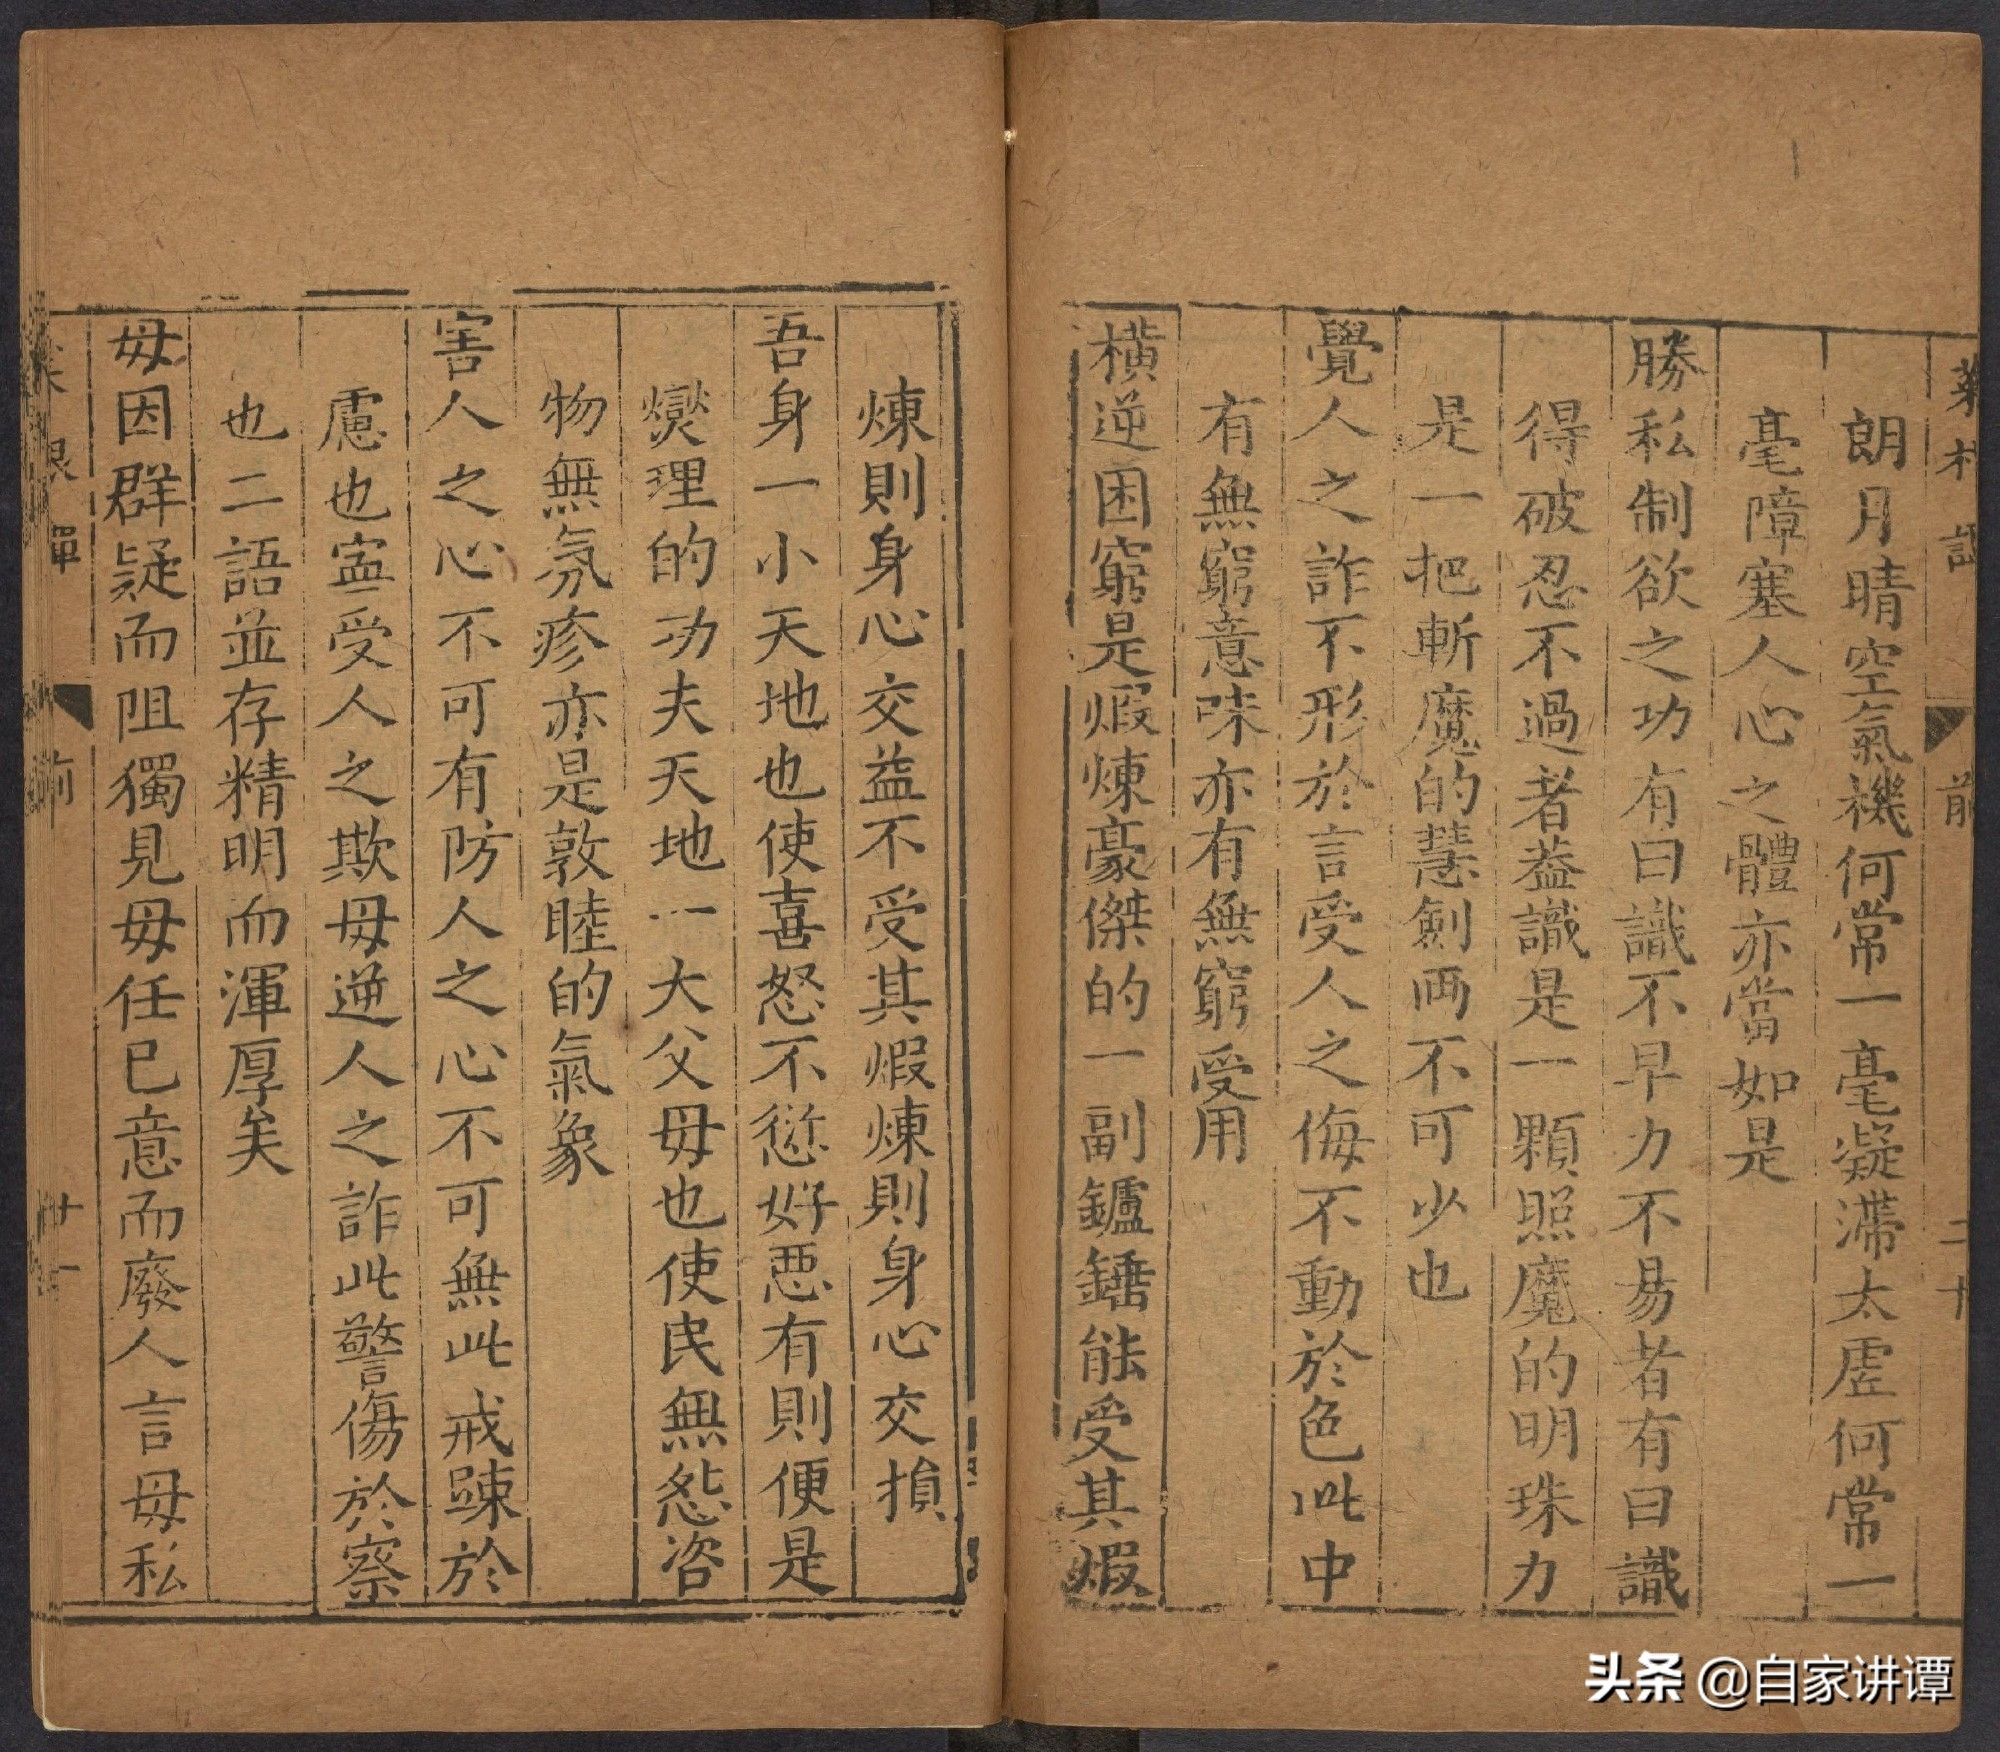 菜根譚 前 二十
朗月晴空氣機何常一毫凝滯太虛何常一
毫障塞人心之體亦當如是
勝私制欲之功有曰識不早力不易者有曰識
得破忍不過者葢識是一顆照魔的明珠力
是一把斬魔的慧劍兩不可少也
覺人之詐不形於言受人之侮不動於色此中
有無窮意味亦有無窮受用
橫逆困窮是煆煉豪傑的一副鑪錘能受其煆
煉則身心交益不受其煆煉則身心交損
吾身一小天地也使喜怒不愆好惡有則便是
燮理的功夫天地一大父母也使民無怨咨
物無氛疹亦是敦睦的氣象
害人之心不可有防人之心不可無此戒踈於
慮也寍受人之欺毋逆人之詐此警傷於察
也二語並存精明而渾厚矣
毋因群疑而阻獨見毋任已意而廢人言毋私
前 廿一
头条 @自家讲谭